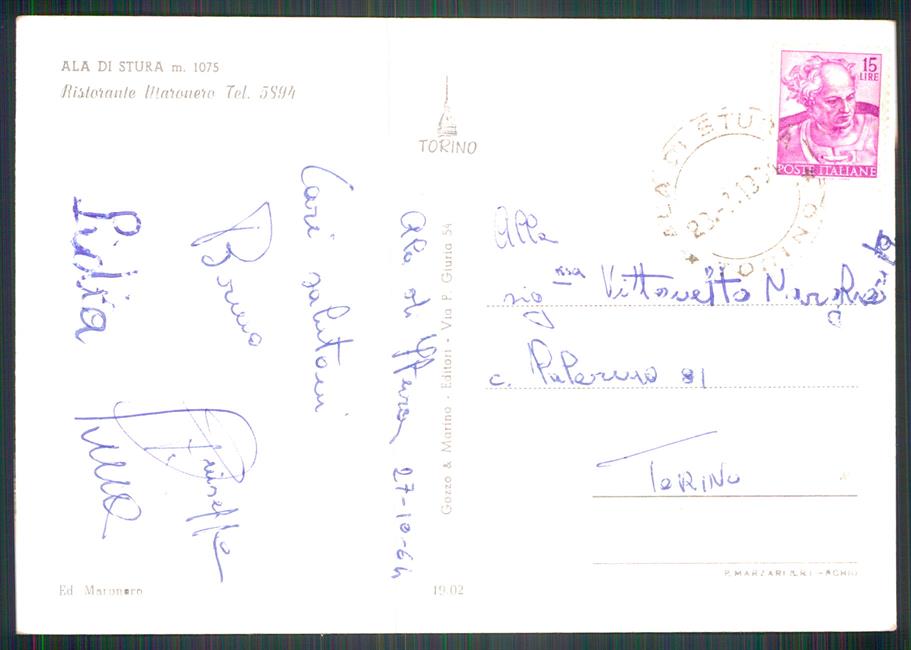 ALA DI STURA m. 1075
Ristorante Maronero Tel. 5894
TORINO
15
LIRE
POSTE ITALIANE
ALA DI STURA
TORINO
Ala di Stura 27-10-64
Cari saluti
Bruno
Giuseppe
Alla
sig na Vittoria
c. Palermo 81
TORINO
Gozzo & Marino - Editori - Via P. Giuria 54
P. MARZARI S.R.L. - SCHIO
Ed Maronero
19.02